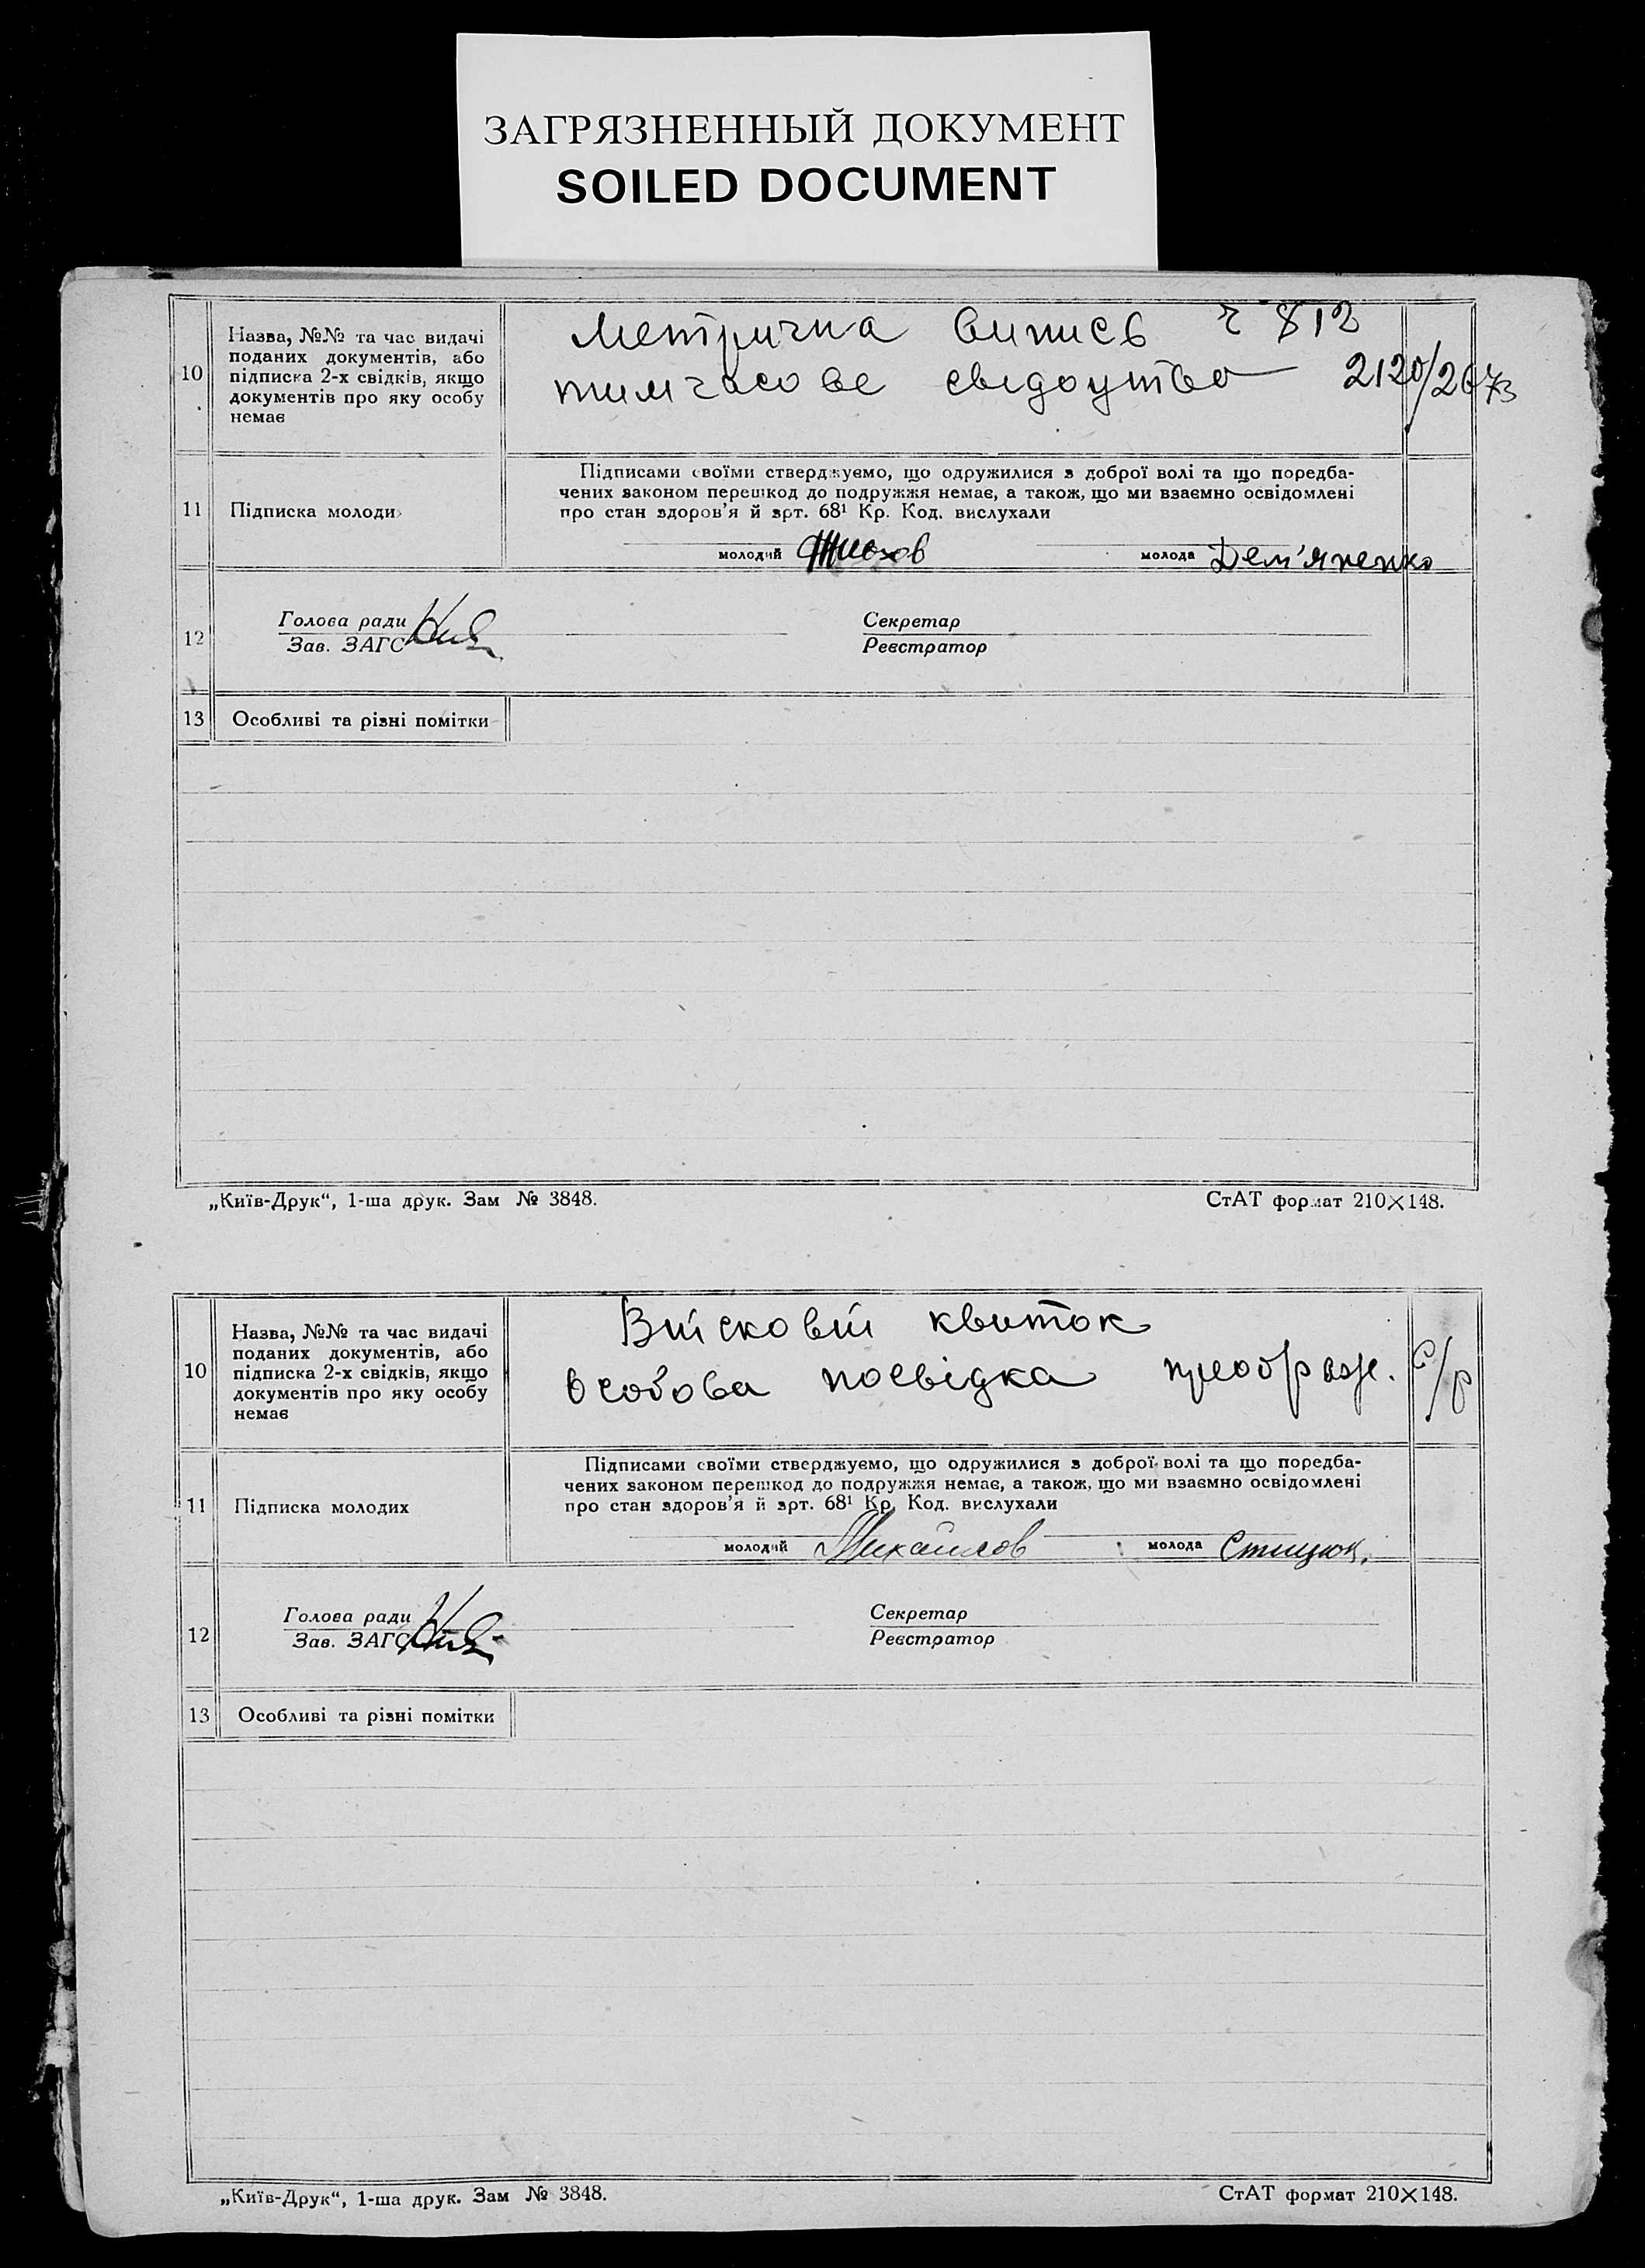 ЗАГРЯЗНЕННЫЙ ДОКУМЕНТ
SOILED DOCUMENT
10
Назва, №№ та час видачі
поданих документів, або
підписка 2-х свідків, якщо
документів про яку особу
немає
Метрична випись ч 812
тимчасове свідоцтво 2120/2673
11
Підписка молоди
Підписами своїми стверджуємо, що одружилися з доброї волі та що поредба-
чених законом перешкод до подружжя немає, а також, що ми взаємно освідомлені
про стан здоров'я й арт. 68¹ Кр. Код. вислухали
молодий
молода Дем'яненко
12
Голова ради
Зав. ЗАГС
Секретар
Реєстратор
13
Особливі та різні помітки
„Київ-Друк“, 1-ша друк. Зам № 3848.
СтАТ формат 210×148.
10
Назва, №№ та час видачі
поданих документів, або
підписка 2-х свідків, якщо
документів про яку особу
немає
Війсковій квиток
особова посвідка преображ. с/р
11
Підписка молодих
Підписами своїми стверджуємо, що одружилися з доброї волі та що поредба-
чених законом перешкод до подружжя немає, а також, що ми взаємно освідомлені
про стан здоров'я й арт. 68¹ Кр. Код. вислухали
молодий Михайлов
молода Стицюк.
12
Голова ради
Зав. ЗАГС
Секретар
Реєстратор
13
Особливі та різні помітки
„Київ-Друк“, 1-ша друк. Зам № 3848.
СтАТ формат 210×148.